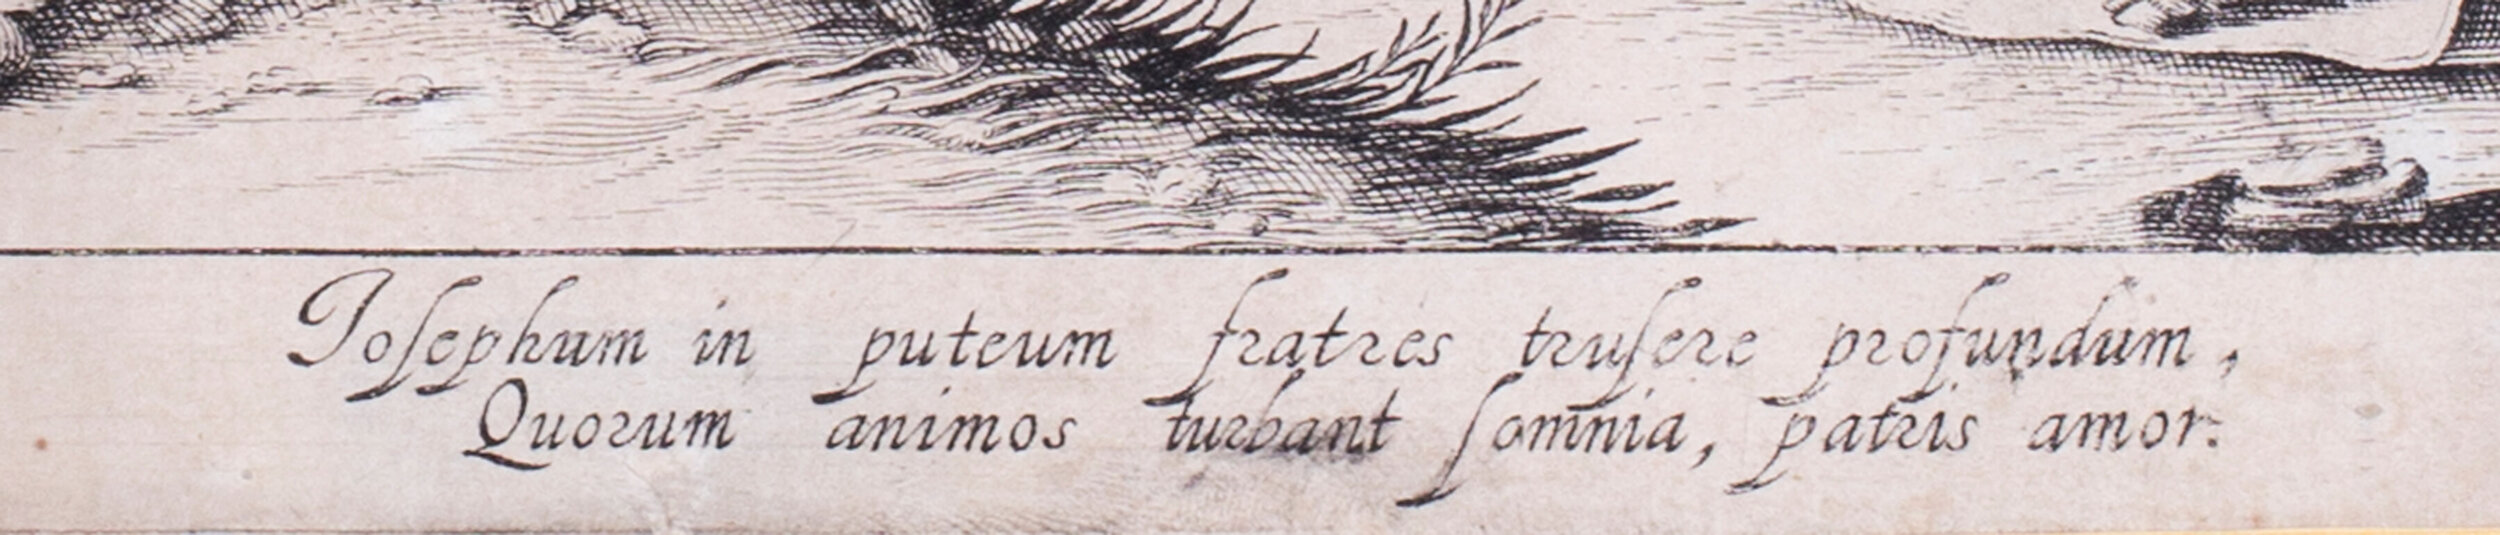 Ioſephum in puteum fratres truſere profundum,
Quorum animos turbant ſomnia, patris amor.